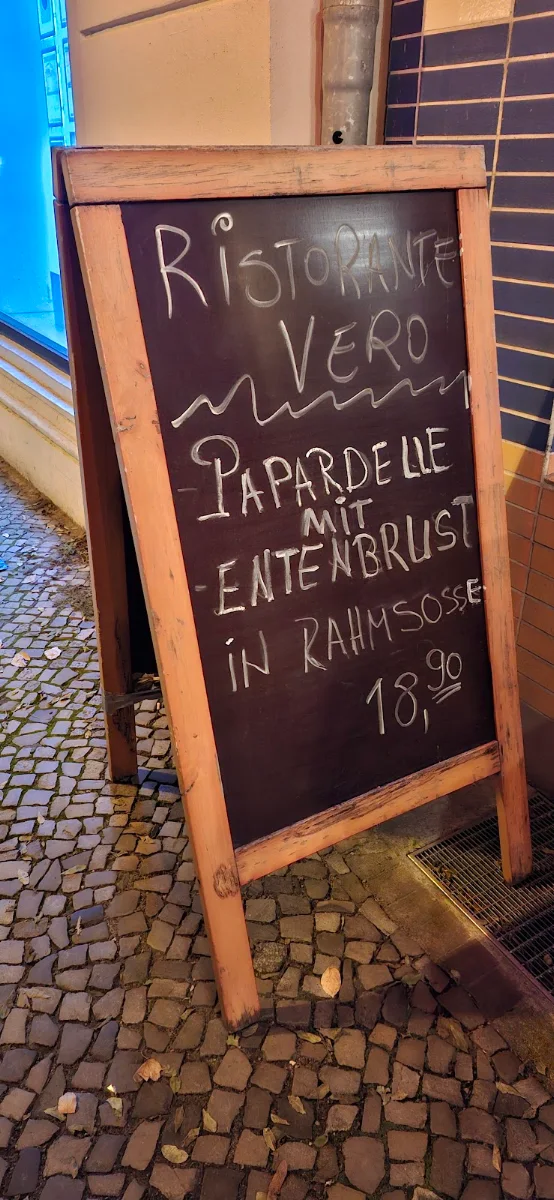 RiSTORANTE
VERO
PAPARDELLE
MiT
ENTENBRUST
iN RAHMSOSSE
18,90